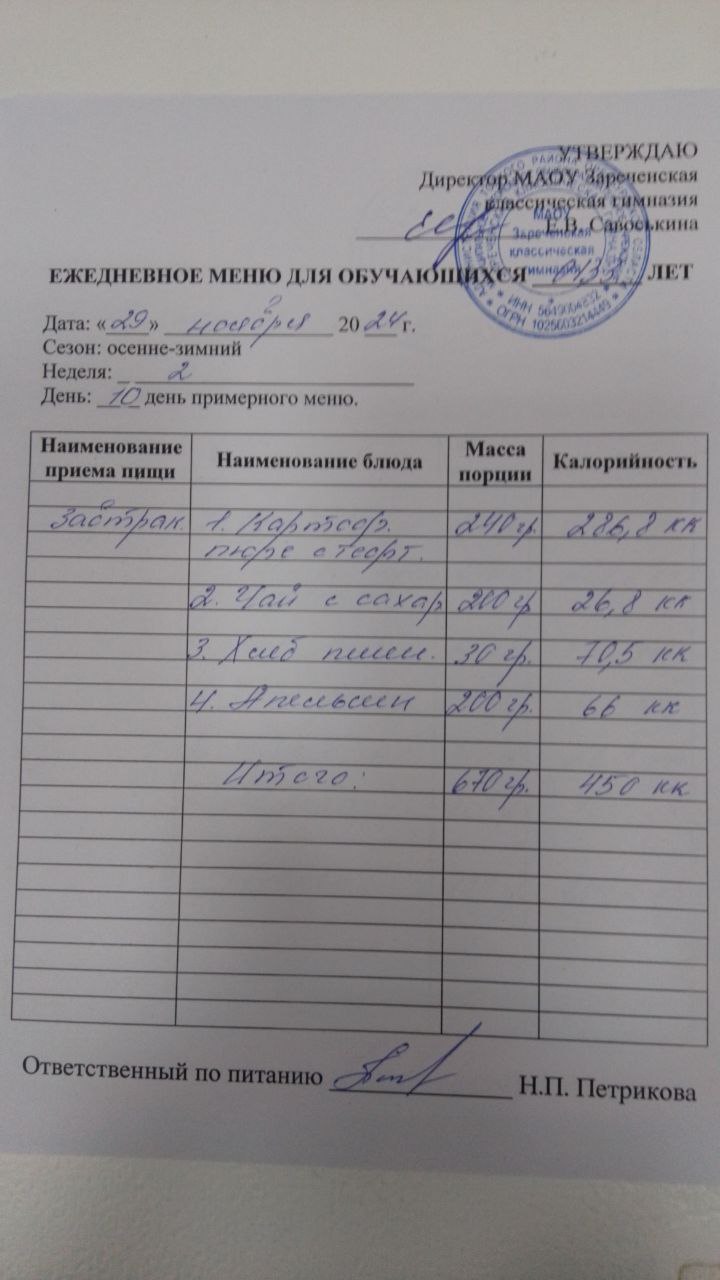 УТВЕРЖДАЮ
Директор МАОУ Зареченская
классическая гимназия
Е.В. Савоськина
МАОУ
Зареченская
классическая
гимназия
ИНН 5649004832
ОГРН 1025603214449
ЕЖЕДНЕВНОЕ МЕНЮ ДЛЯ ОБУЧАЮЩИХСЯ ЛЕТ
Дата: «29» ноября 2024 г.
Сезон: осенне-зимний
Неделя: 2
День: 10 день примерного меню.
Наименование приема пищи Наименование блюда Масса порции Калорийность
Завтрак 1. Картоф. 240 гр. 286,8 кк
пюре с тефт.
2. Чай с сахар 200 гр 26,8 кк
3. Хлеб пшен. 30 гр. 70,5 кк
4. Апельсин 200 гр. 66 кк
Итого: 670 гр. 450 кк
Ответственный по питанию Н.П. Петрикова